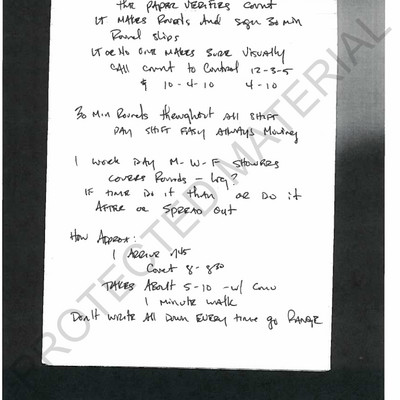 the PAPER VERIFIES COUNT
LT MAKES Rounds And sign 30 min
Round slips
LT OR NO ONE MAKES SURE VISUALLY
CALL COUNT to Control 12-3-5
10-4-10 4-10
30 Min Rounds throughout All SHIFT
DAY SHIFT EASY ALWAYS Moving
1 WORK DAY M-W-F SHOWERS
COVERS Rounds - Log?
IF time Do it than OR DO it
AFTER OR SPREAD OUT
How Approx:
I ARRIVE 745
Count 8-830
TAKES About 5-10 -w/ Conv
1 Minute WALK
Don't WRITE All Down EVERY time go RANGE
PROTECTED MATERIAL